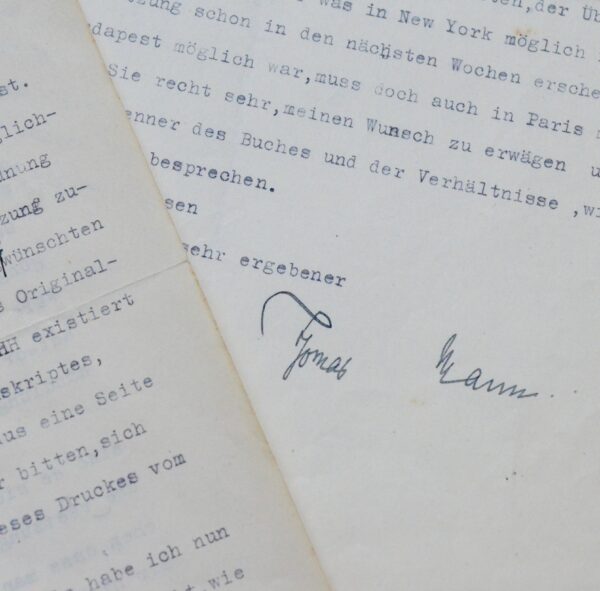 st.
glich-
dnung
zung zu-
wünschten
s Original-
HH existiert
skriptes,
aus eine Seite
r bitten,sich
eses Druckes vom
habe ich nun
wie
ten,der Üb
was in New York möglich
tzung schon in den nächsten Wochen ersche
dapest möglich war,muss doch auch in Paris
Sie recht sehr,meinen Wunsch zu erwägen u
enner des Buches und der Verhältnisse ,wi
besprechen.
sen
sehr ergebener
Thomas Mann.